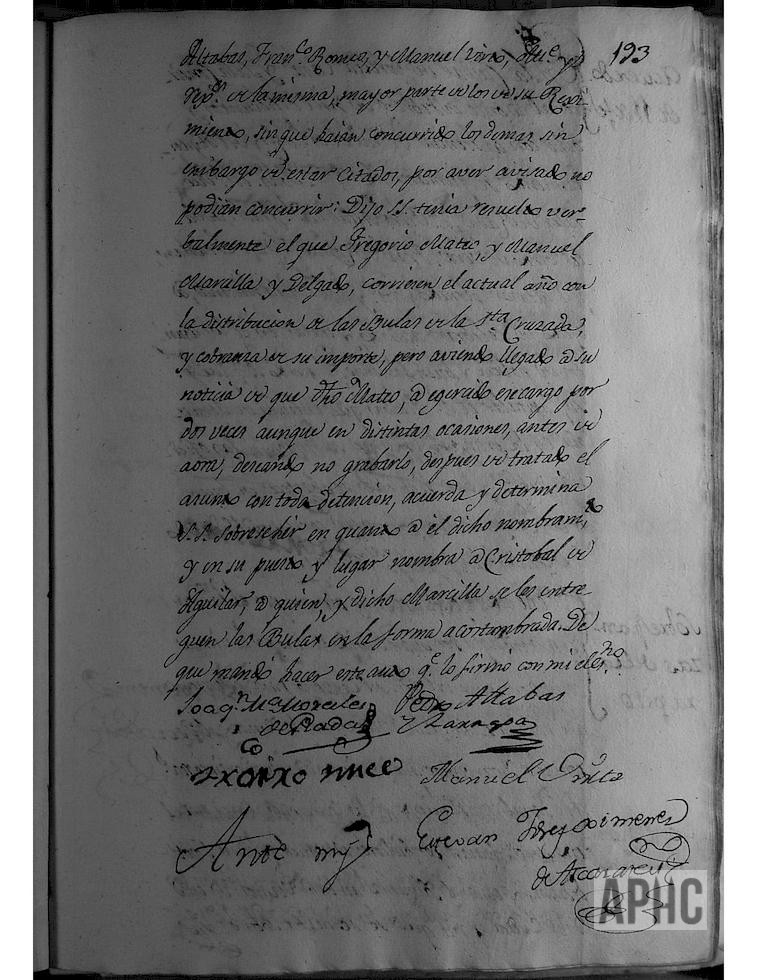 193
Altabas, Fran.co Romeo, y Manuel
de la misma, mayor parte de los de su Regi-
miento, sin que haian concurrido los demas sin
embargo de estar Citados, por aver avisado no
podian concurrir: Dijo S.S. tenia resuelto ver-
balmente el que Gregorio Mateo, y Manuel
Marcilla y Delgado, corriesen el actual año con
la distribucion de las Bulas de la S.ta Cruzada,
y cobranza de su importe, pero aviendo llegado a su
noticia de que dho Mateo, a egercido ese cargo por
dos veces aunque en distintas ocasiones, antes de
aora, deseando no grabarlo, despues de tratado el
asunto con toda detencion, acuerda y determina
S.S. sobreseher en quanto a el dicho nombram.to
y en su puesto y lugar nombra a Cristobal de
Aguilar, a quien, y dicho Marcilla se les entre
guen las Bulas en la forma acostumbrada. De
que mando hacer este auto q.e lo firmo con mi el es.no
Joaq.n M.a Morales
de Rada
Pedro Altabas
y Zaragoza
Manuel
Ante mi
Estevan Ximenez
de
APHC